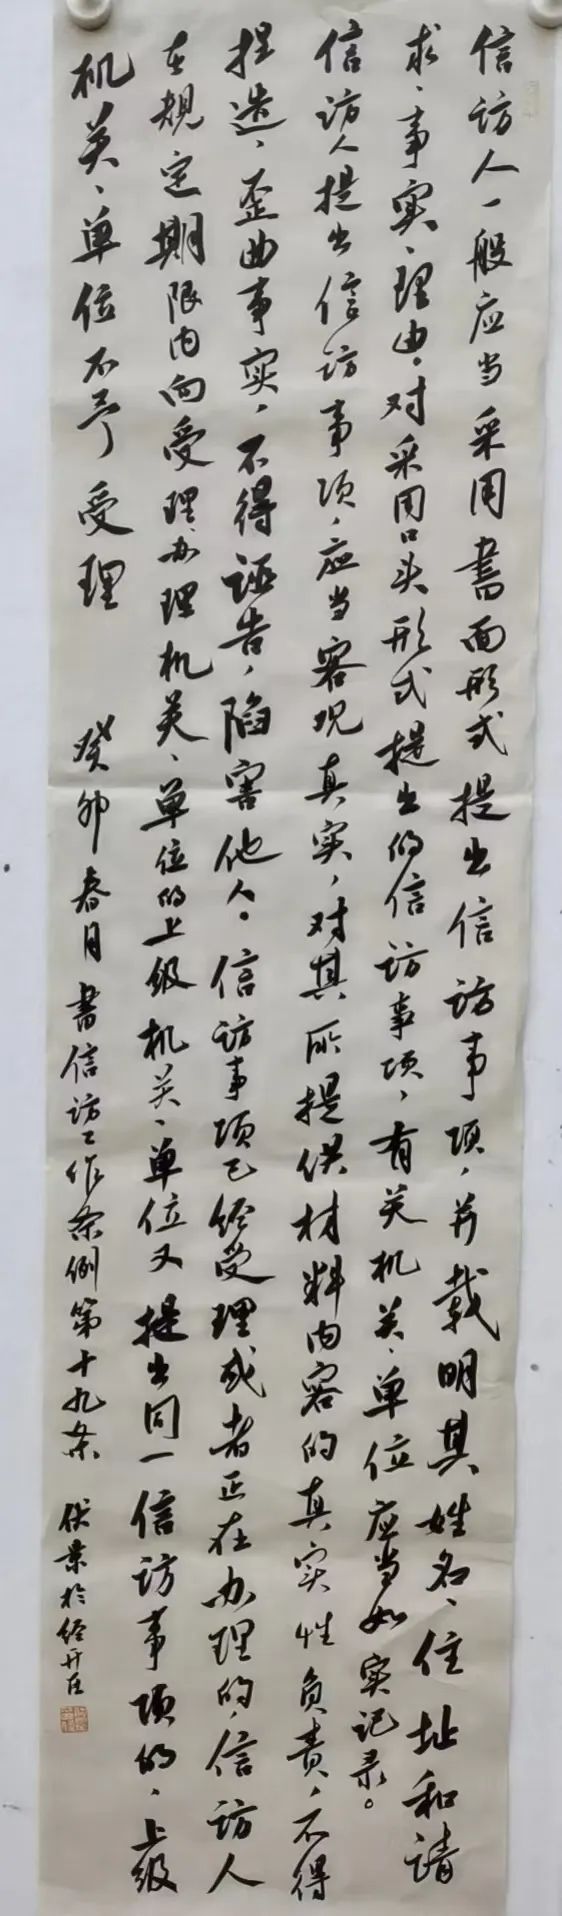 信访人一般应当采用书面形式提出信访事项，并载明其姓名、住址和请
求、事实、理由。对采用口头形式提出的信访事项，有关机关、单位应当如实记录。
信访人提出信访事项，应当客观真实，对其所提供材料内容的真实性负责，不得
捏造，歪曲事实，不得诬告，陷害他人。信访事项已经受理或者正在办理的，信访人
在规定期限内向受理、办理机关、单位的上级机关、单位又提出同一信访事项的，上级
机关、单位不予受理
癸卯春月书信访工作条例第十九条 伏景於经开区